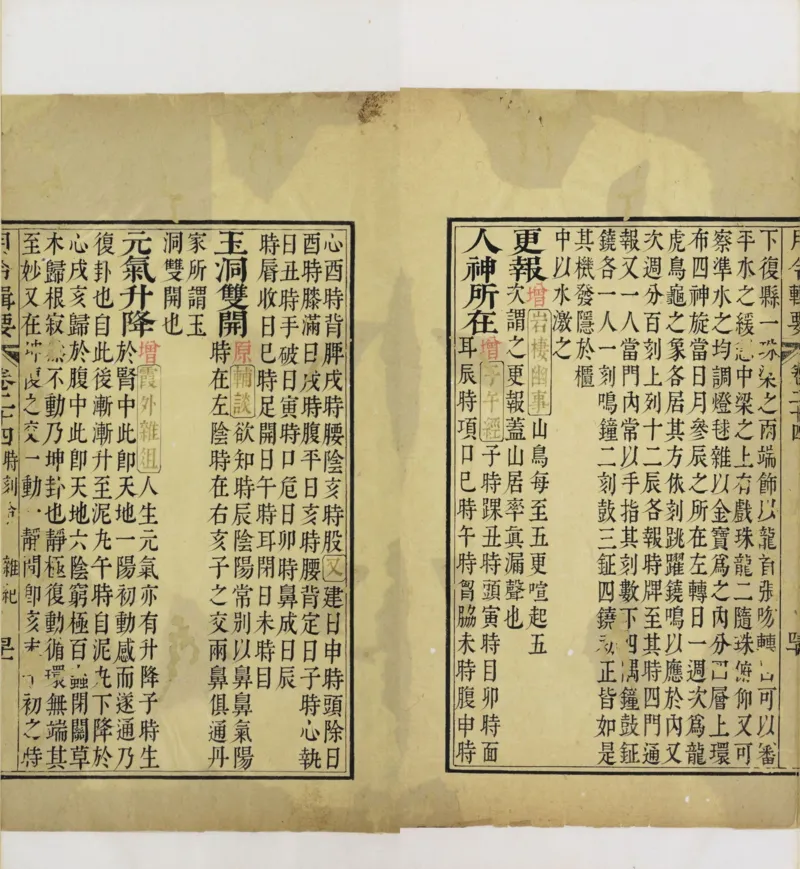 月令輯要 卷二十四
下復縣一珠梁之兩端飾以龍首張吻轉目可以審
平水之緩急中梁之上有戲珠龍二隨珠俯仰又可
察準水之均調燈毬雜以金寶爲之內分四層上環
布四神旋當日月參辰之所在左轉日一週次爲龍
虎鳥龜之象各居其方依刻跳躍鐃鳴以應於內又
次週分百刻上列十二辰各報時牌至其時四門通
報又一人當門內常以手指其刻數下四隅鐘鼓鉦
鐃各一人一刻鳴鐘二刻鼓三鉦四鐃初正皆如是
其機發隱於櫃
中以水激之
更報 增 岩棲幽事 山鳥每至五更喧起五
次謂之更報蓋山居率眞漏聲也
人神所在 增 子午經 子時踝丑時頭寅時目卯時面
耳辰時項口巳時午時胷脇未時腹申時
心酉時背胛戌時腰陰亥時股 又 建日申時頭除日
酉時膝滿日戌時腹平日亥時腰背定日子時心執
日丑時手破日寅時口危日卯時鼻成日辰
時脣收日巳時足開日午時耳閉日未時目
玉洞雙開 原 輔談 欲知時辰陰陽常別以鼻鼻氣陽
時在左陰時在右亥子之交兩鼻俱通丹
家所謂玉
洞雙開也
元氣升降 增 霞外雜俎 人生元氣亦有升降子時生
於腎中此卽天地一陽初動感而遂通乃
復卦也自此後漸漸升至泥丸午時自泥丸下降於
心戌亥歸於腹中此卽天地六陰窮極百蟲閉關草
木歸根寂然不動乃坤卦也靜極復動循環無端其
至妙又在坤復之交一動一靜間卽亥末子初之時
月令輯要 卷二十四 時刻令 雜記